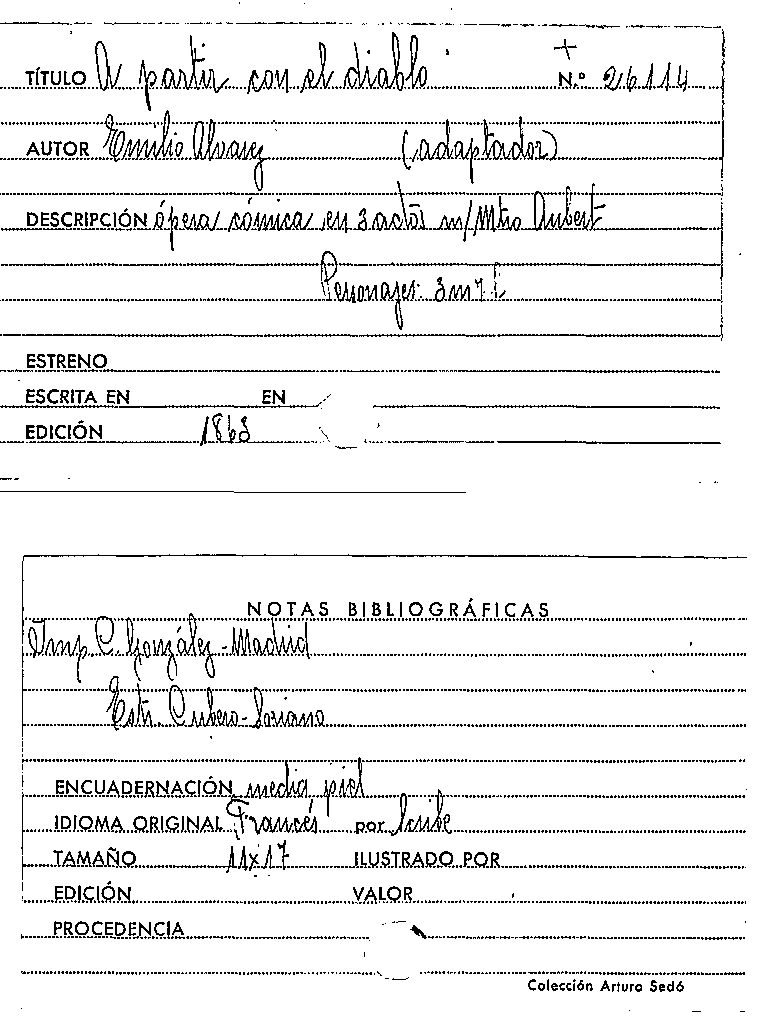 TÍTULO A partir con el diablo N.º 26114
AUTOR Emilio Alvarez (adaptador)
DESCRIPCIÓN ópera cómica en 3 actos m/ Mtro Aubert
Personajes: 3m
ESTRENO
ESCRITA EN EN
EDICIÓN 1863
NOTAS BIBLIOGRÁFICAS
Imp. C. González - Madrid
Estr. Cubero-Soriano
ENCUADERNACIÓN media piel
IDIOMA ORIGINAL Francés por Scribe
TAMAÑO 11x17 ILUSTRADO POR
EDICIÓN VALOR
PROCEDENCIA
Colección Arturo Sedó